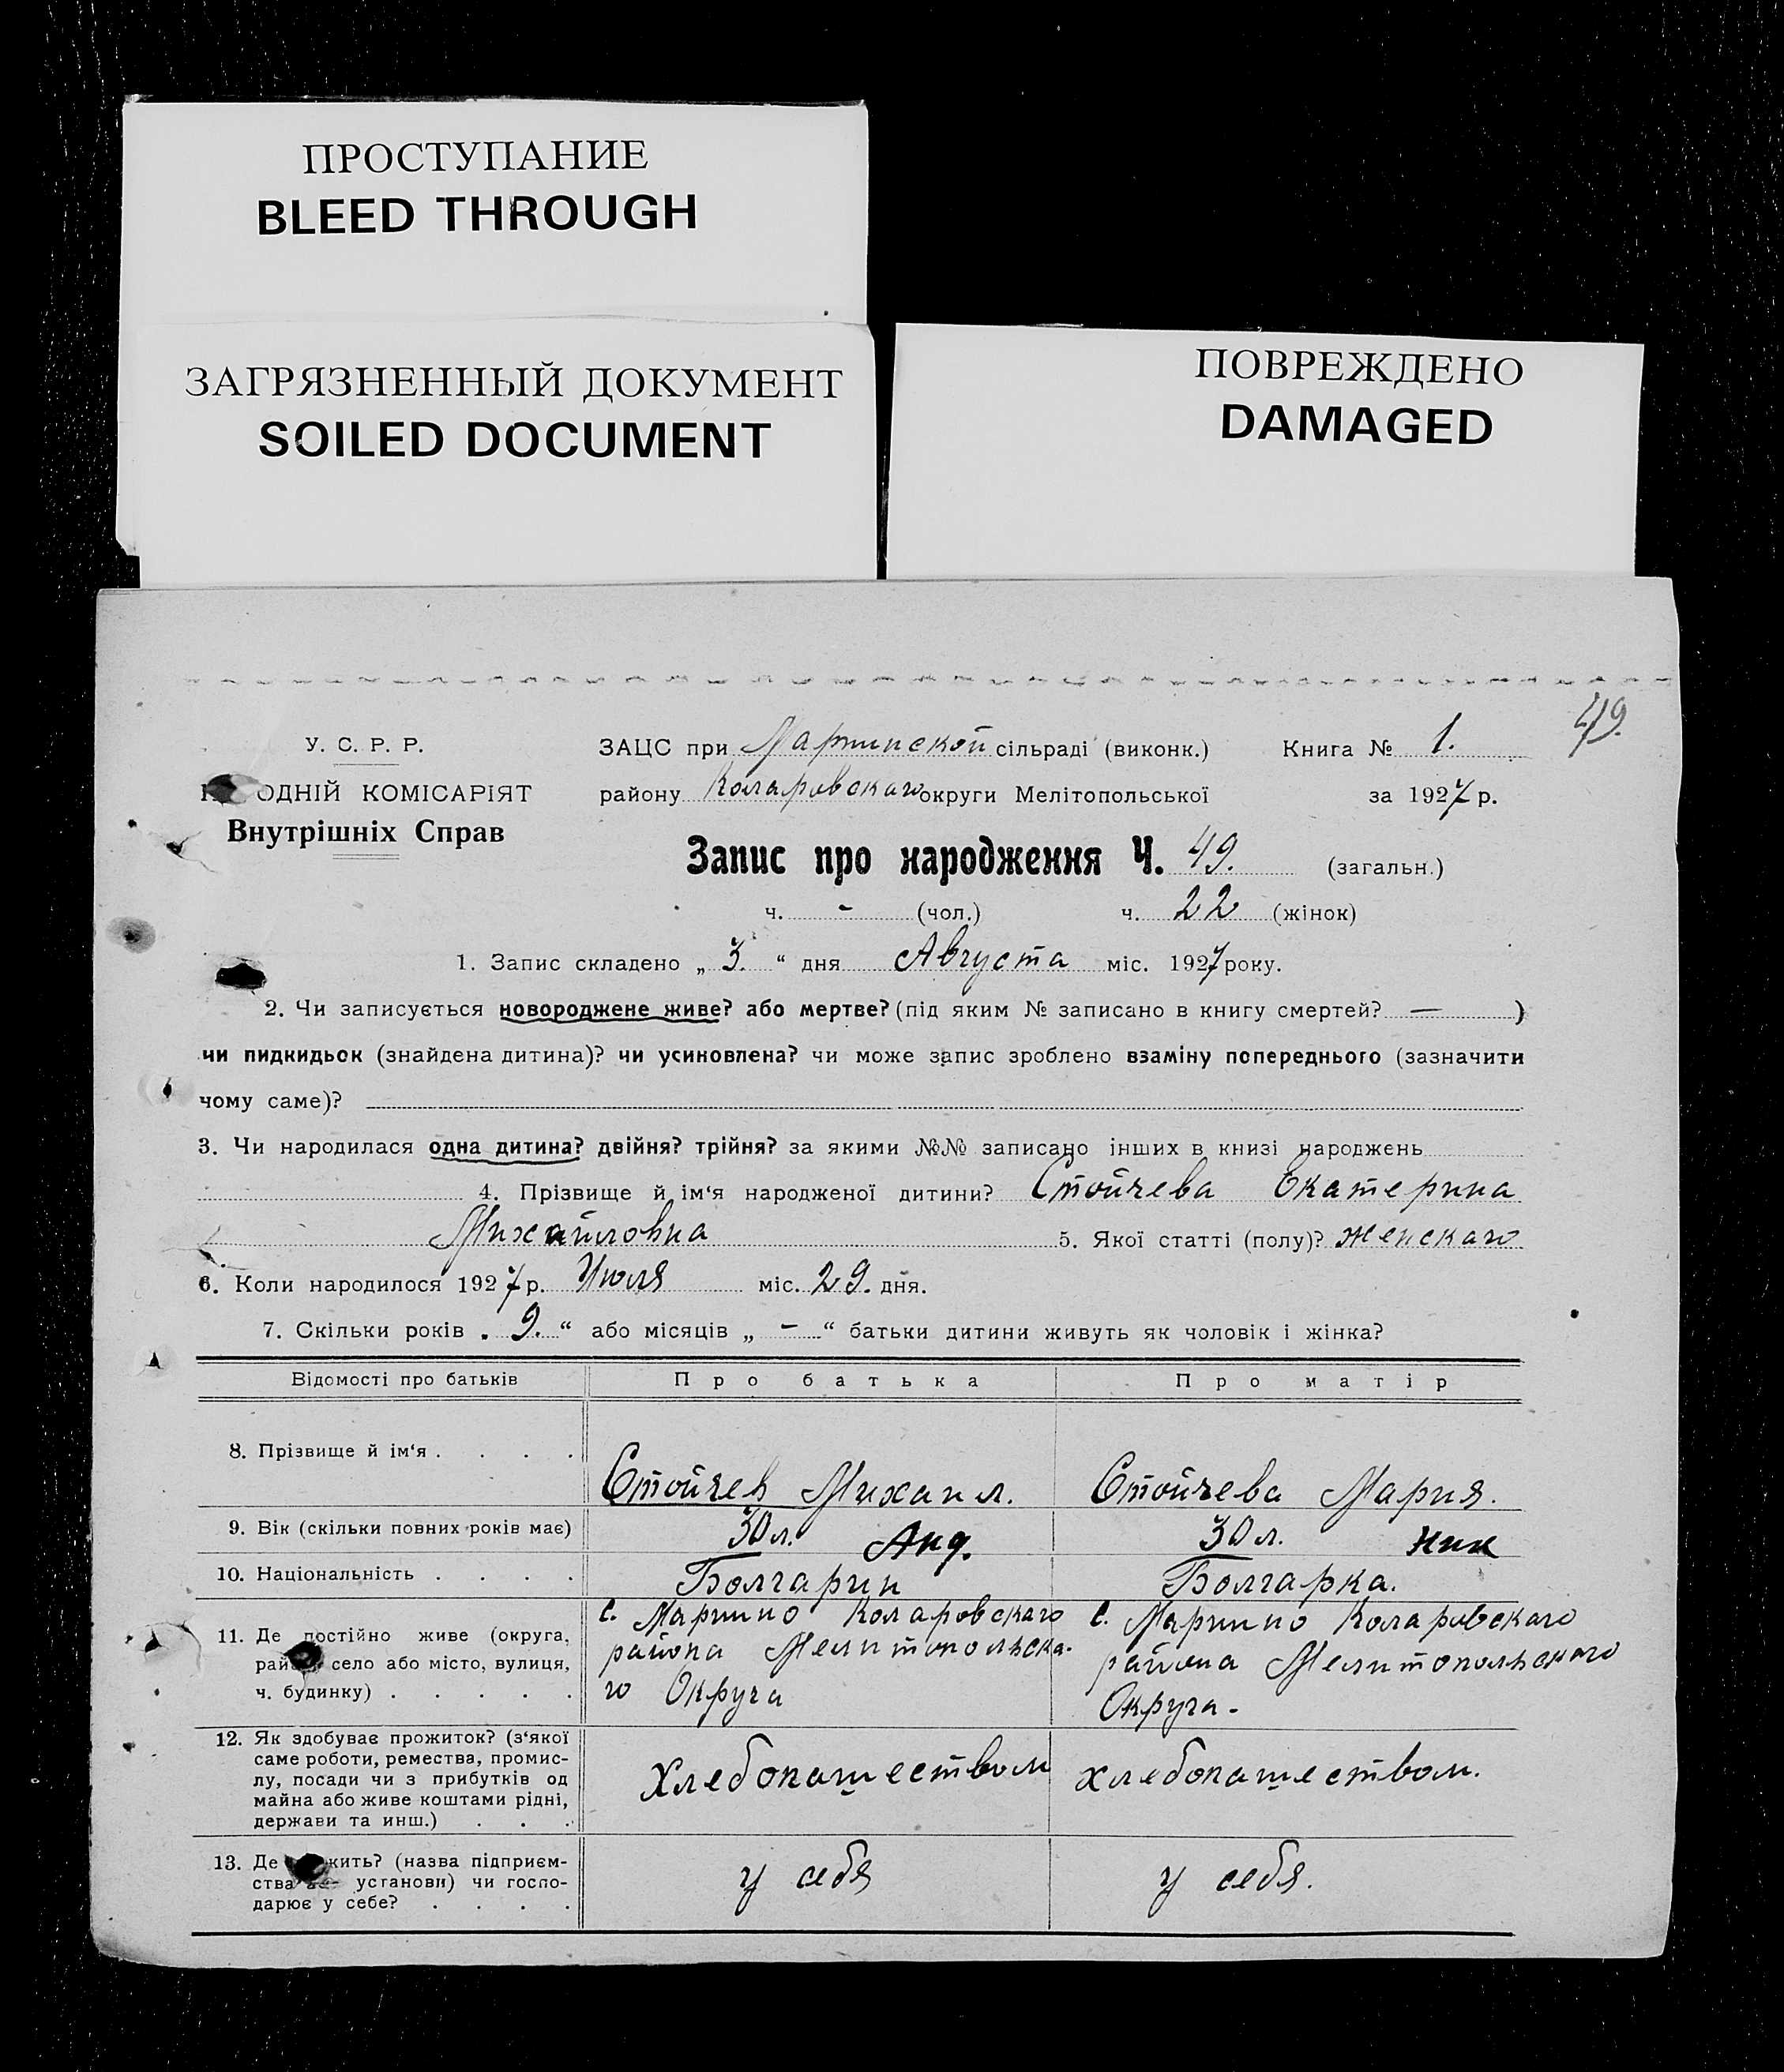 ПРОСТУПАНИЕ
BLEED THROUGH
ЗАГРЯЗНЕННЫЙ ДОКУМЕНТ
SOILED DOCUMENT
ПОВРЕЖДЕНО
DAMAGED
49.
У. С. Р. Р.
ОДНІЙ КОМІСАРІЯТ
Внутрішніх Справ
ЗАЦС при Мариинской сільраді (виконк.) Книга № 1.
району Коларовскаго округи Мелітопольської за 1927 р.
Запис про народження Ч. 49. (загальн.)
ч. - (чол.) ч. 22 (жінок)
1. Запис складено „ 3. “ дня Августа міс. 1927 року.
2. Чи записується новороджене живе? або мертве? (під яким № записано в книгу смертей? — )
чи пидкидьок (знайдена дитина)? чи усиновлена? чи може запис зроблено взаміну попереднього (зазначити
чому саме)?
3. Чи народилася одна дитина? двійня? трійня? за якими №№ записано інших в книзі народжень
4. Прізвище й ім‘я народженої дитини? Стойчева Екатерина
Михайловна 5. Якої статті (полу)? женскаго
6. Коли народилося 1927 р. Июля міс. 29. дня.
7. Скільки років „ 9. “ або місяців „ - “ батьки дитини живуть як чоловік і жінка?
Відомості про батьків Про батька Про матір
8. Прізвище й ім‘я . . . . Стойчев Михаил. Стойчева Мария.
9. Вік (скільки повних років має) 30 л. Анд. 30 л. Ник
10. Національність . . . . Болгарин Болгарка.
11. Де постійно живе (округа,
рай село або місто, вулиця,
ч. будинку) . . . . .
с. Марино Коларовскаго
района Мелитопольска-
го Округа
с. Марино Коларовскаго
района Мелитопольскаго
Округа.
12. Як здобуває прожиток? (з‘якої
саме роботи, ремества, промис-
лу, посади чи з прибутків од
майна або живе коштами рідні,
держави та инш.) . . .
Хлебопашеством хлебопашеством.
13. Де жить? (назва підприєм-
ства установи) чи госпо-
дарює у себе? . . . .
у себя у себя.